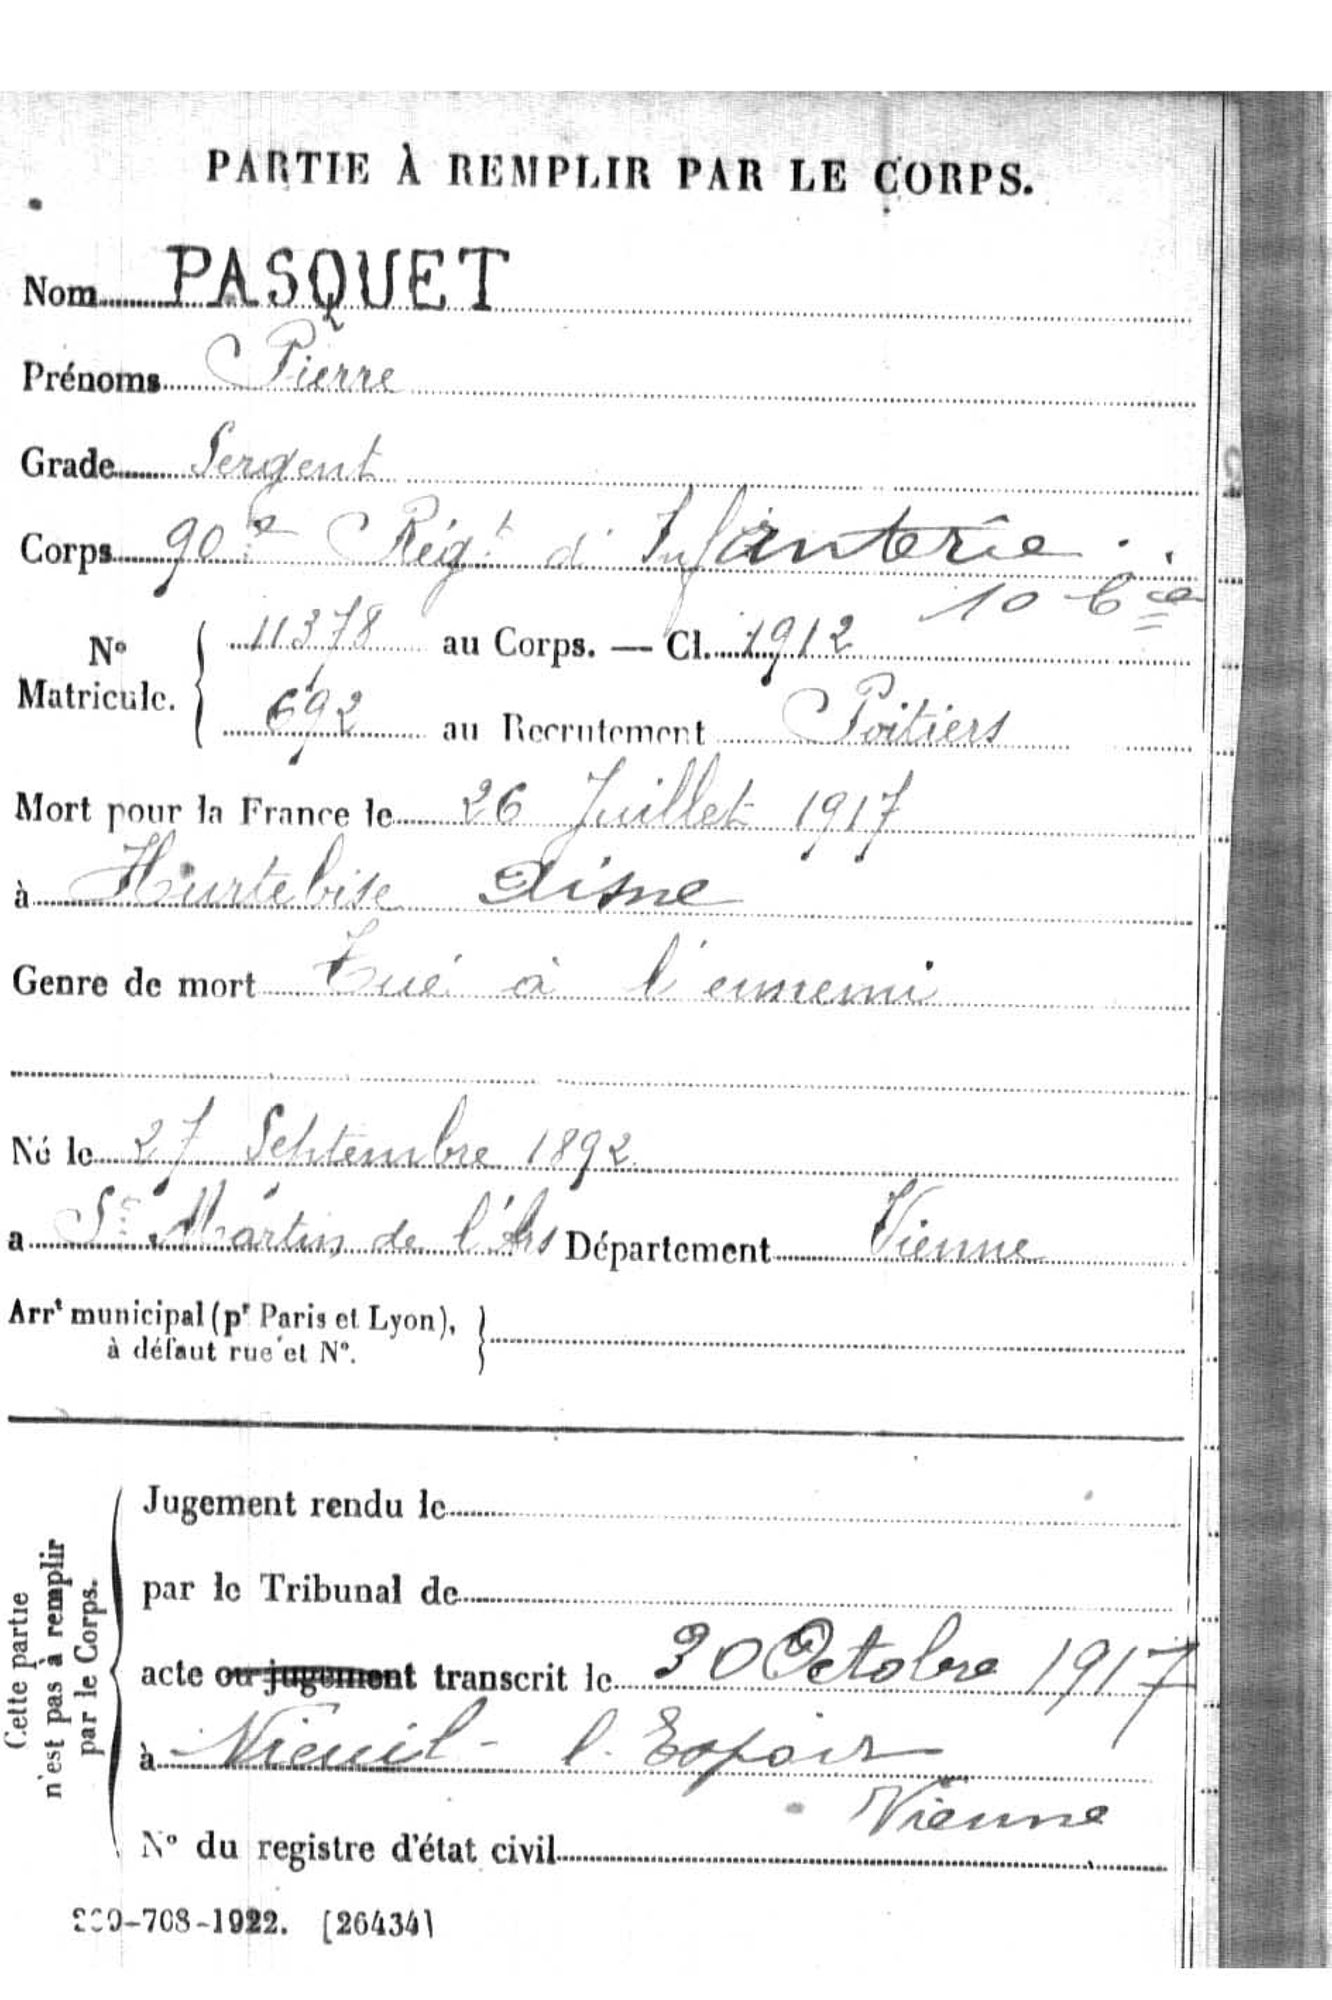 PARTIE À REMPLIR PAR LE CORPS.
Nom PASQUET
Prénoms Pierre
Grade Sergent
Corps 90e Régt d'Infanterie
10 Cie
No Matricule. 11378 au Corps. — Cl. 1912
692 au Recrutement Poitiers
Mort pour la France le 26 Juillet 1917
à Hurtebise Aisne
Genre de mort Tué à l'ennemi
Né le 27 Septembre 1892
a St Martin de l'Ars Département Vienne
Arrt municipal (pr Paris et Lyon),
à défaut rue et No.
Cette partie
n'est pas à remplir
par le Corps.
Jugement rendu le
par le Tribunal de
acte ou jugement transcrit le 30 Octobre 1917
à Nieuil-l'Espoir
Vienne
No du registre d'état civil
-708-1922. [26434]